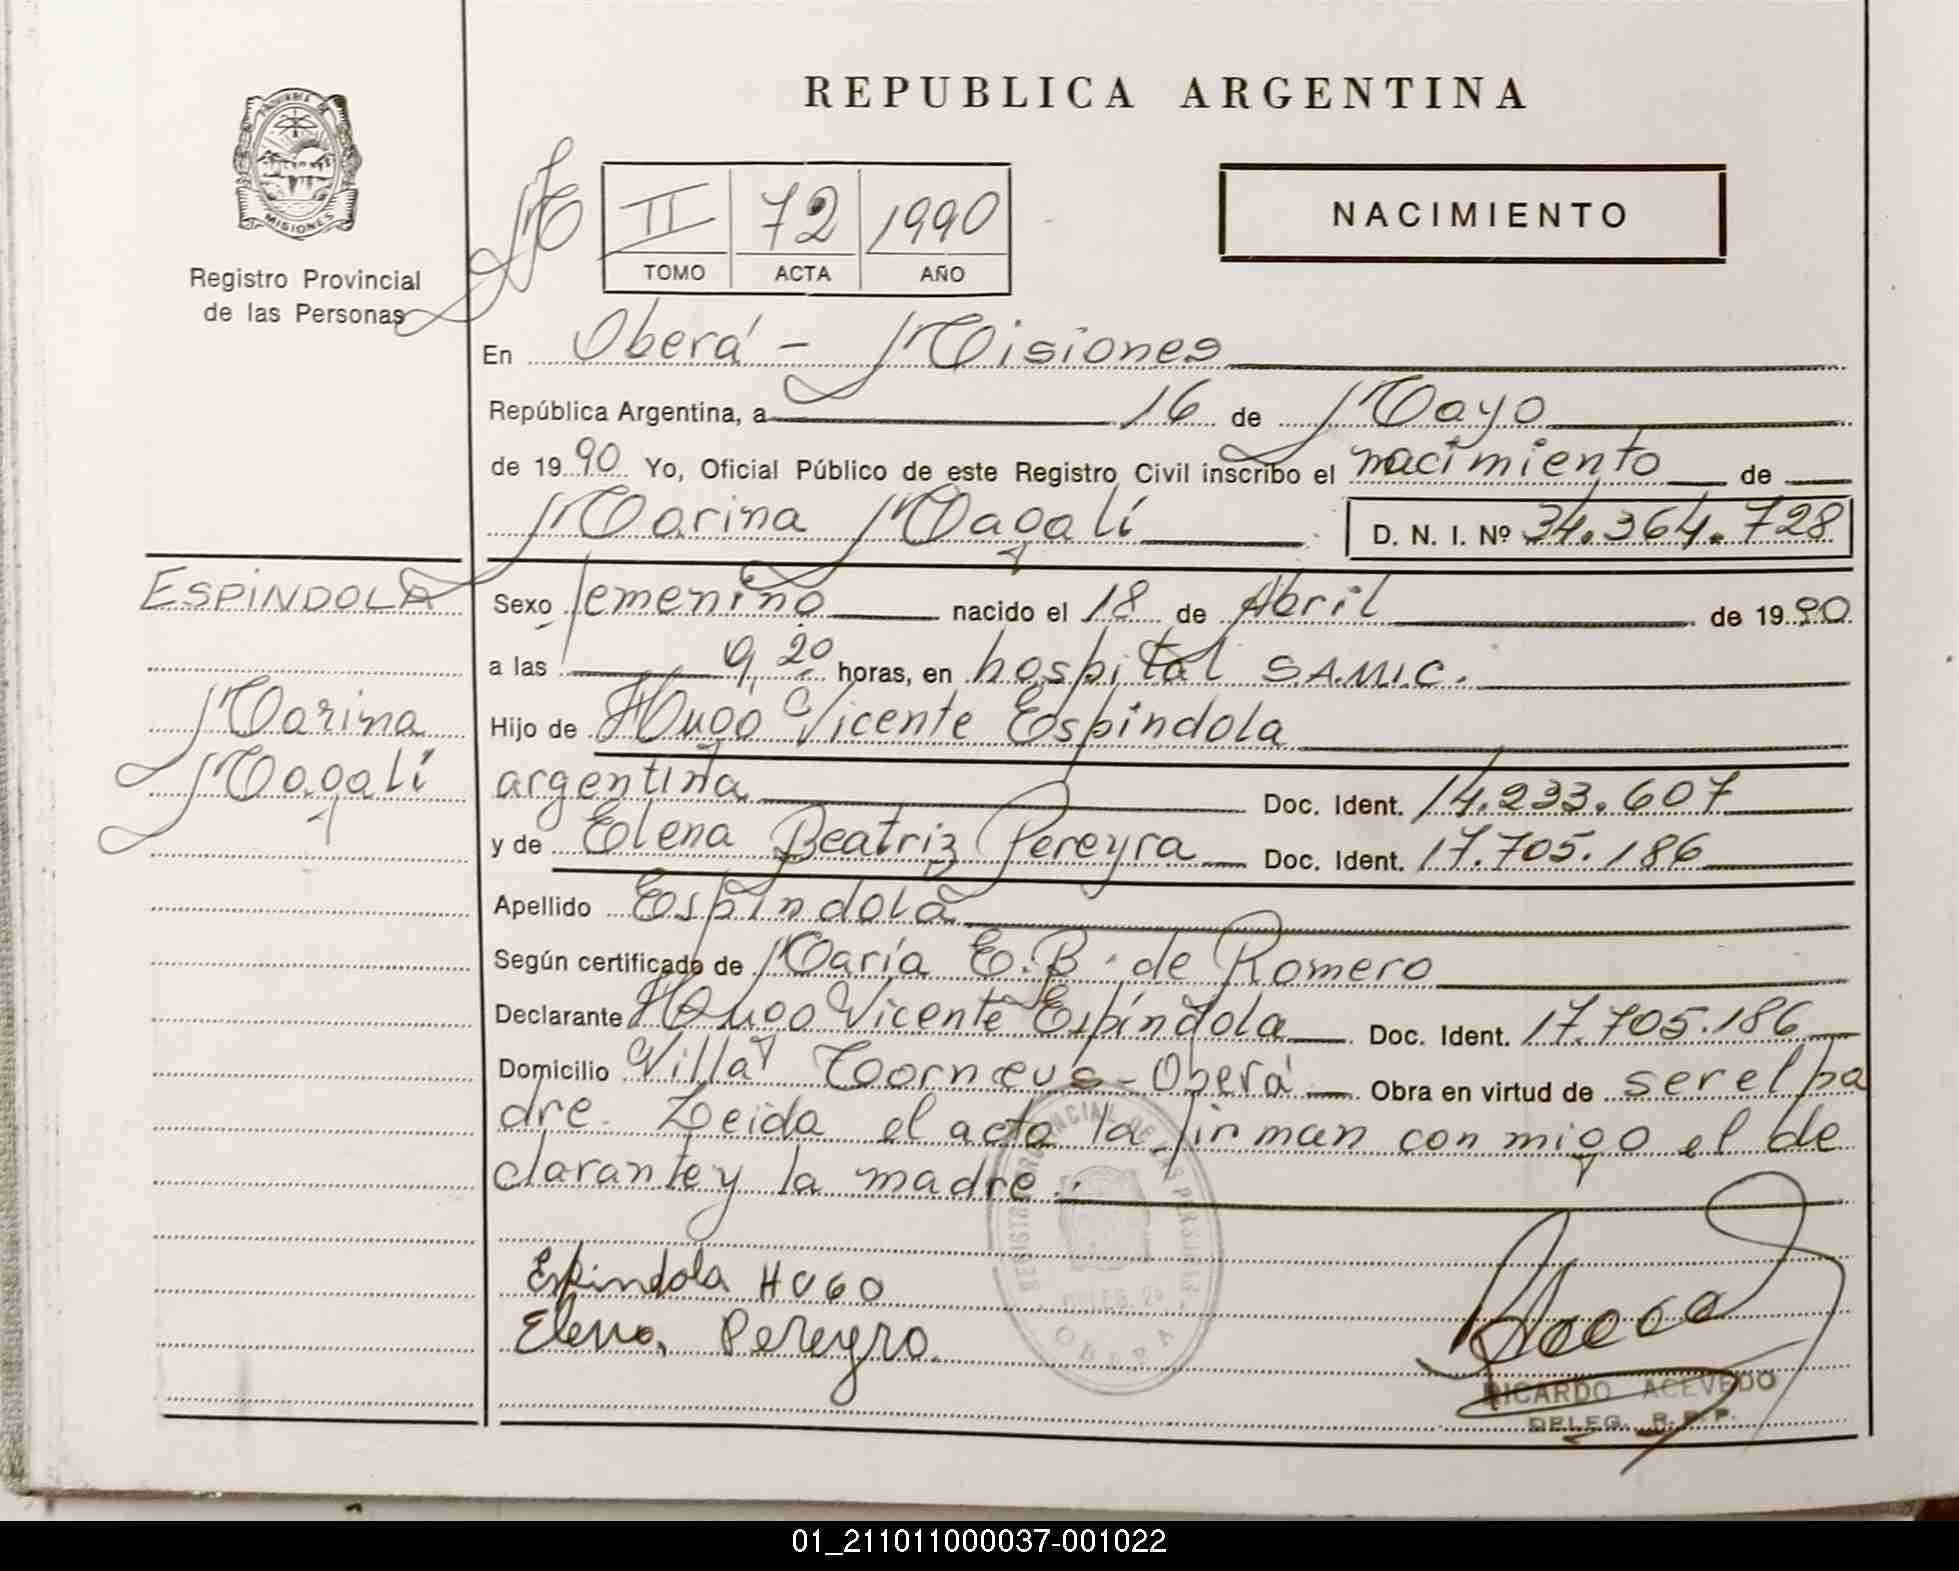 REPUBLICA ARGENTINA
PROVINCIA DE
MISIONES
Registro Provincial
de las Personas
II 72 1990
TOMO ACTA AÑO
NACIMIENTO
En Oberá - Misiones
República Argentina, a 16 de Mayo
de 1990 Yo, Oficial Público de este Registro Civil inscribo el nacimiento de
Marina Magalí D. N. I. Nº 34.364.728
ESPINDOLA
Marina
Magalí
Sexo femenino nacido el 18 de Abril de 1990
a las 9,20 horas, en hospital S.A.M.I.C.
Hijo de Hugo Vicente Espindola
argentina Doc. Ident. 14.233.607
y de Elena Beatriz Pereyra Doc. Ident. 17.705.186
Apellido Espindola
Según certificado de María E. B. de Romero
Declarante Hugo Vicente Espíndola Doc. Ident. 17.705.186
Domicilio Villa - Oberá Obra en virtud de ser el pa
dre. Leida el acta la firman conmigo el de
clarante y la madre.
REGISTRO PROVINCIAL DE LAS PERSONAS
OBERA
Espindola HUGO
Elena Pereyra.
RICARDO ACEVEDO
DELEG. R.P.P.
01_211011000037-001022